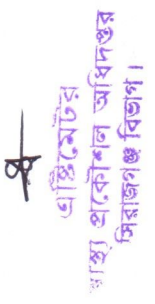 এস্টিমেটর
স্বাস্থ্য প্রকৌশল অধিদপ্তর
সিরাজগঞ্জ বিভাগ।